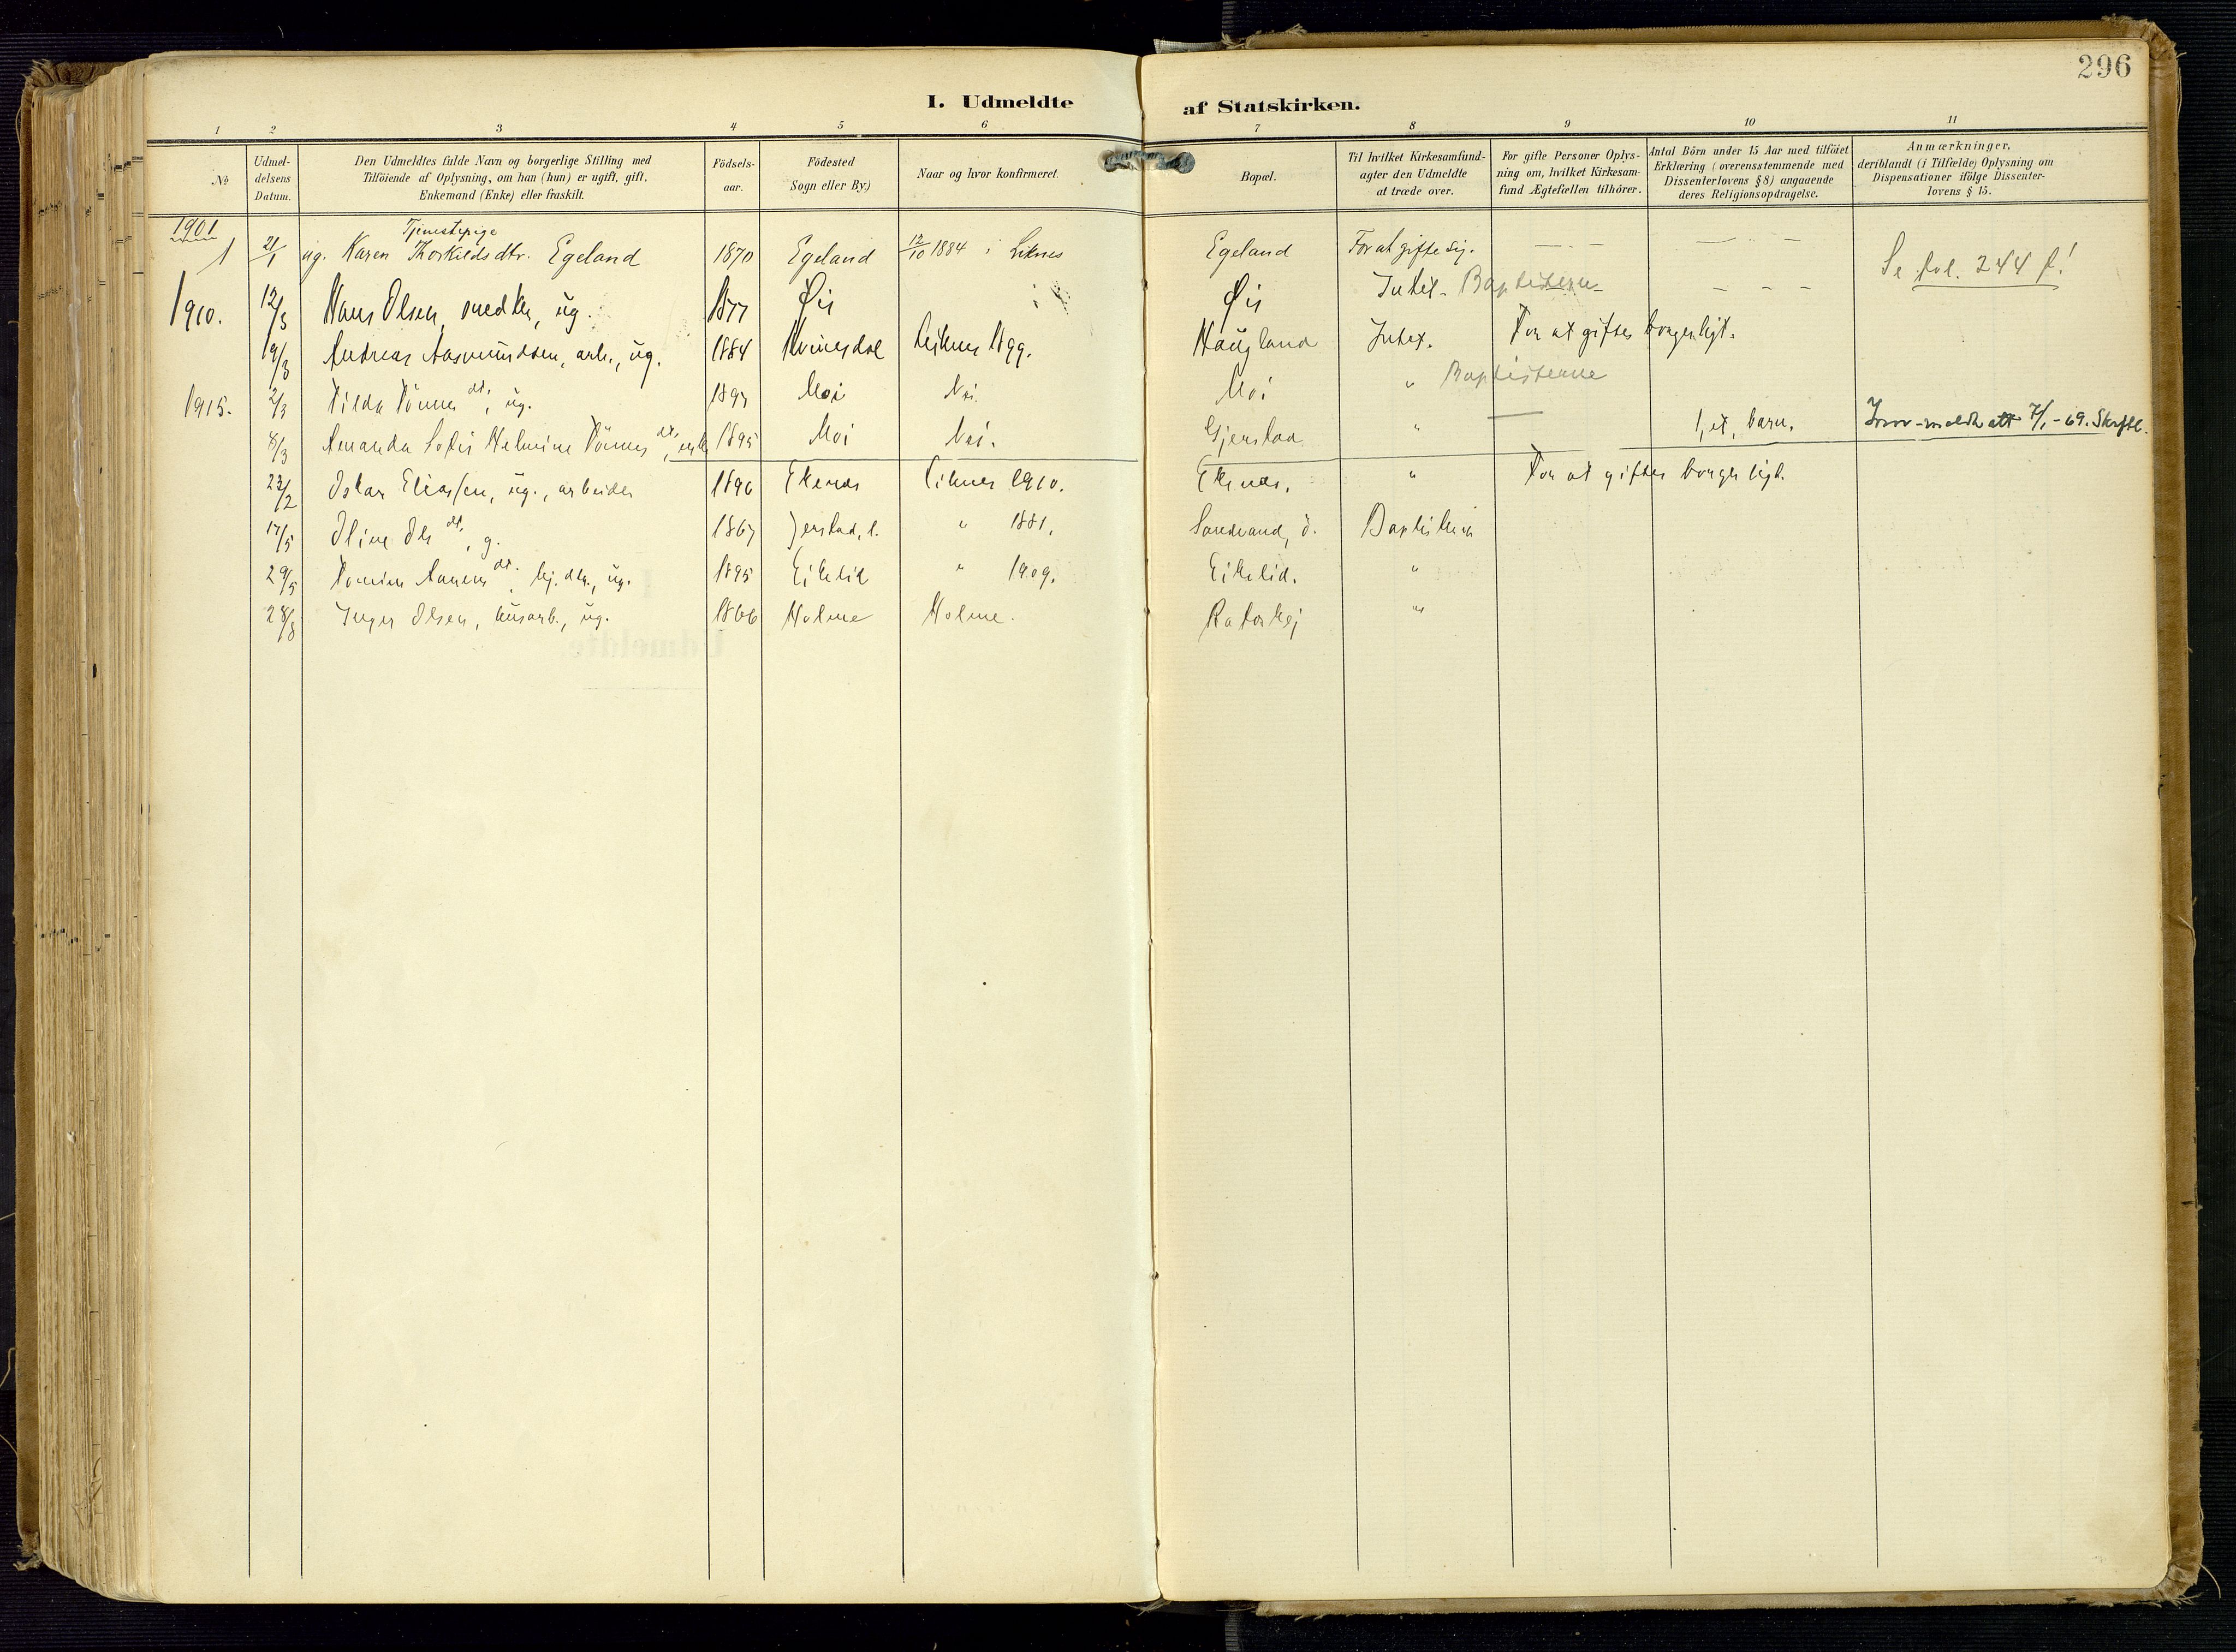 296
I. Udmeldte af Statskirken.
1 2 3 4 5 6 7 8 9 10 11
№
Udmel-
delsens
Datum.
Den Udmeldtes fulde Navn og borgerlige Stilling med
Tilföiende af Oplysning, om han (hun) er ugift, gift,
Enkemand (Enke) eller fraskilt.
Födsels-
aar.
Födested
Sogn eller By)
Naar og hvor konfirmeret.
Bopæl.
Til hvilket Kirkesamfund-
agter den Udmeldte
at træde over.
For gifte Personer Oplys-
ning om, hvilket Kirkesam-
fund Ægtefællen tilhörer.
Antal Börn under 15 Aar med tilföiet
Erklæring (overensstemmende med
Dissenterlovens § 8) angaaende
deres Religionsopdragelse.
Anmærkninger,
deriblandt (i Tilfælde) Oplysning om
Dispensationer ifölge Dissenter-
lovens § 15.
1901
Tjenestepige
1 21/1 ug. Karen Thorkildsdtr. Egeland 1870 Egeland 12/10 1884 i Liknes Egeland For at gifte sig. — · — — · —
Se fol. 244 f!
1910. 12/3 Hans Olsen, snedker, ug. 1877 Øis Øis Intet - Baptisterne - — — —
19/3 Andreas Aasmundsen, arb., ug. 1884 Kvinesdal Leiknes 1899. Haugland Intet. For at giftes borgerligt.
1915. 2/3 Tilda Tönnes dt., ug. 1897 Moi Nei. Moi " Baptisterne
8/3 Amanda Sofie Helmine Tönnes dt., enke 1895 Moi Nei. Gjerstad " — 1, et, barn. Innmeldt att 7/1 -69.
23/2 Oskar Eliassen, ug., arbeider 1890 Ekenes Liknes 1910. Ekenes. " For at giftes borgerligt.
17/5 Oline Ols dt., g. 1867 Jerstad, l. " 1881. Sandvand, ö. Baptisterne
29/5 Tomine Aanens dt. tj. dtr., ug. 1895 Eikelid " 1909. Eikelid. "
28/8 Inger Olsen, husarb., ug. 1866 Holme Holme. "